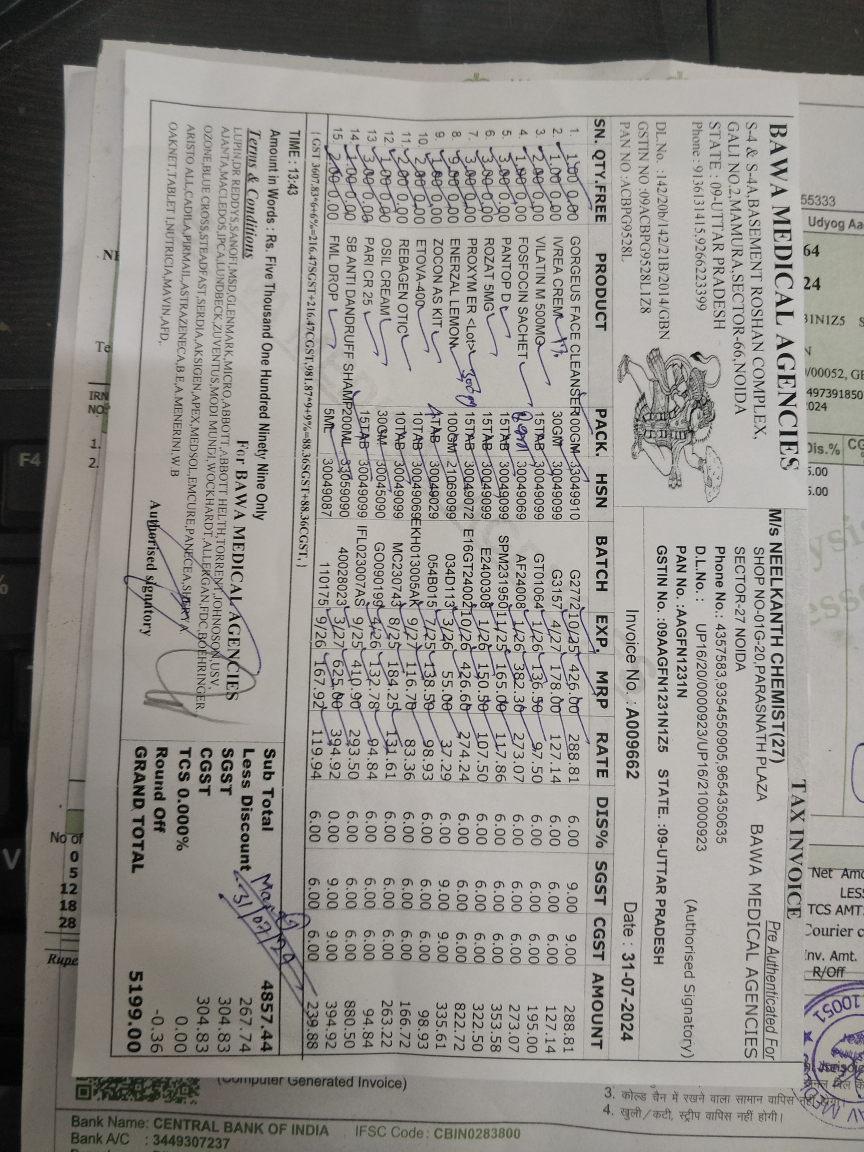 BAWA MEDICAL AGENCIES
S-4 & S-4A,BASEMENT ROSHAN COMPLEX,
GALI NO.2,MAMURA,SECTOR-66,NOIDA
STATE : 09-UTTAR PRADESH
Phone : 9136131415,9266223399
DL.No. :142/20b/142/21B/2014/GBN
GSTIN NO :09ACBPG9528L1Z8
PAN NO :ACBPG9528L
TAX INVOICE
Pre Authenticated For
BAWA MEDICAL AGENCIES
(Authorised Signatory)
M/s NEELKANTH CHEMIST(27)
SHOP NO-01G-20,PARASNATH PLAZA
SECTOR-27 NOIDA
Phone No.: 4357583,9354550905,9654350635
D.L.No.: UP16/20/0000923/UP16/210000923
PAN No. :AAGFN1231N
GSTIN No. :09AAGFN1231N1Z5 STATE. :09-UTTAR PRADESH
Invoice No. : A009662 Date : 31-07-2024
SN. QTY.FREE PRODUCT PACK. HSN BATCH EXP. MRP RATE DIS% SGST CGST AMOUNT
1. 1.00 0.00 GORGEUS FACE CLEANSER 100GM 33049910 G2772 10/25 426.00 288.81 6.00 9.00 9.00 288.81
2. 1.00 0.00 IVREA CREM 30GM 30049099 G3157 4/27 178.00 127.14 6.00 6.00 6.00 127.14
3. 2.00 0.00 VILATIN M 500MG 15TAB 30049099 GT01064 1/26 136.50 97.50 6.00 6.00 6.00 195.00
4. 1.00 0.00 FOSFOCIN SACHET 8gm 30049069 AF24008 1/26 382.30 273.07 6.00 6.00 6.00 273.07
5. 3.00 0.00 PANTOP D 15TAB 30049099 SPM231950 11/25 165.00 117.86 6.00 6.00 6.00 353.58
6. 3.00 0.00 ROZAT 5MG 15TAB 30049099 E2400308 1/26 150.50 107.50 6.00 6.00 6.00 322.50
7. 3.00 0.00 PROXYM ER <Lot> 300 15TAB 30049072 E16GT24002 10/25 426.60 274.24 6.00 6.00 6.00 822.72
8. 9.00 0.00 ENERZAL LEMON 100GM 21069099 034D113 3/26 55.00 37.29 6.00 9.00 9.00 335.61
9. 1.00 0.00 ZOCON AS KIT 4TAB 30049029 054B015 7/25 138.50 98.93 6.00 6.00 6.00 98.93
10. 2.00 0.00 ETOVA-400 10TAB 30049069 EKH013005AK 9/27 116.70 83.36 6.00 6.00 6.00 166.72
11. 2.00 0.00 REBAGEN OTIC 10TAB 30049099 MC23074 8/25 184.25 131.61 6.00 6.00 6.00 263.22
12. 1.00 0.00 OSIL CREAM 30GM 30045090 GO090199 4/26 132.78 94.84 6.00 6.00 6.00 94.84
13. 3.00 0.00 PARI CR 25 15TAB 30049099 IFL023007AS 9/25 410.90 293.50 6.00 6.00 6.00 880.50
14. 1.00 0.00 SB ANTI DANDRUFF SHAMP 200ML 33059090 40028023 3/27 625.00 394.92 0.00 9.00 9.00 394.92
15. 2.00 0.00 FML DROP 5ML 30049087 110175 9/26 167.92 119.94 6.00 6.00 6.00 239.88
{ GST 3607.83*6+6%=216.47SGST+216.47CGST,981.87*9+9%=88.36SGST+88.36CGST, }
TIME : 13:43
Amount in Words : Rs. Five Thousand One Hundred Ninety Nine Only
Terms & Conditions
LUPIN,DR REDDYS,SANOFI,MSD,GLENMARK,MICRO,ABBOTT,ABBOTT HELTH,TORRENT,JOHNOSON,USV,
AJANTA,MACLEDOS,IPCA,LUNDBECK,ZUVENTUS,MODI MUNDI,WOCKHARDT,ALLERGAN,FDC,BOEHRINGER
OZONE,BLUE CROSS,STEADFAST,SERDIA,AKSIGEN,APEX,MEDSOL,EMCURE,PANECEA,
ARISTO ALL,CADILA,PIRMAIL,ASTRAZENECA,B.E.A,MENERINI,W.B
OAKNET,TABLET I,NUTRICIA,MAVIN,AFD,
For BAWA MEDICAL AGENCIES
Authorised signatory
Sub Total 4857.44
Less Discount 267.74
SGST 304.83
CGST 304.83
TCS 0.000% 0.00
Round Off -0.36
GRAND TOTAL 5199.00
31/07/24
55333
Udyog Aa
64
24
31N1Z5 S
N
/00052, GB
497391850
024
Dis.% CG
5.00
5.00
Net Amo
LESS
TCS AMT.
Courier c
Inv. Amt.
R/Off
10051
NE
Te
IRN
NO.
1.
2.
No of
0
5
12
18
28
Rupe
(Computer Generated Invoice)
3. कोल्ड चैन में रखने वाला सामान वापिस नहीं होगा।
4. खुली/कटी, स्ट्रीप वापिस नहीं होगी।
Bank Name: CENTRAL BANK OF INDIA IFSC Code : CBIN0283800
Bank A/C : 3449307237
F4
%
V